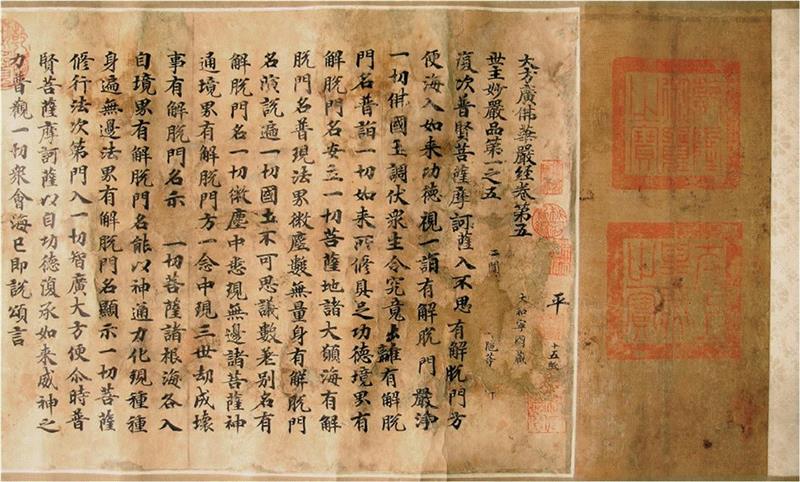 平
十五紙
大方廣佛華嚴經卷第五
世主妙嚴品第一之五
復次普賢菩薩摩訶薩入不思有解脫門方
便海入如来功德視一詣有解脫門 嚴淨
一切佛國玉調伏衆生令究竟出離有解脫
門名普詣一切如来所修具足功德境界有
解脫門名安立一切菩薩地諸大願海有解
脫門名普現法界微塵數無量身有解脫門
名演說遍一切國土不可思議數差別名有
解脫門名一切微塵中悉現無邊諸菩薩神
通境界有解脫門方一念中現三世劫成壞
事有解脫門名示 一切菩薩諸根海各入
自境界有解脫門名能以神通力化現種種
身遍無邊法界有解脫門名顯示一切菩薩
修行法次第門入一切智廣大方便尒時普
賢菩薩摩訶薩以自功德復承如来威神之
力普觀一切衆會海已即說頌言